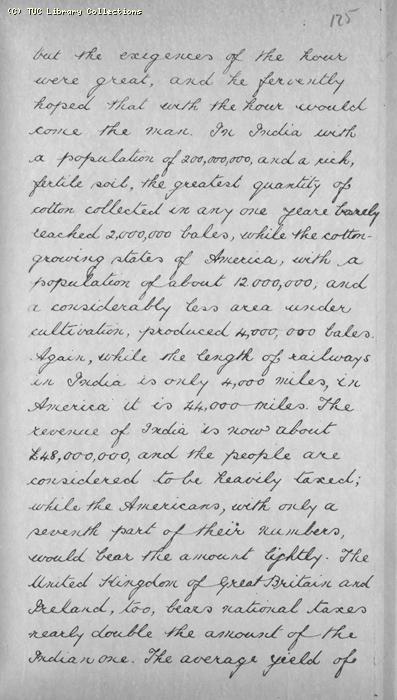 (C) TUC Library Collections
125
but the exigences of the hour
were great, and he fervently
hoped that with the hour would
come the man. In India with
a population of 200,000,000, and a rich,
fertile soil, the greatest quantity of
cotton collected in any one yeare barely
reached 2,000,000 bales, while the cotton-
growing states of America, with a
population of about 12.000,000, and
a considerably less area under
cultivation, produced 4,000,000 bales.
Again, while the length of railways
in India is only 4,000 miles, in
America it is 44,000 miles. The
revenue of India is now about
£48,000,000, and the people are
considered to be heavily taxed;
while the Americans, with only a
seventh part of their numbers,
would bear the amount lightly. The
United Kingdom of Great Britain and
Ireland, too, bears national taxes
nearly double the amount of the
Indian one. The average yield of